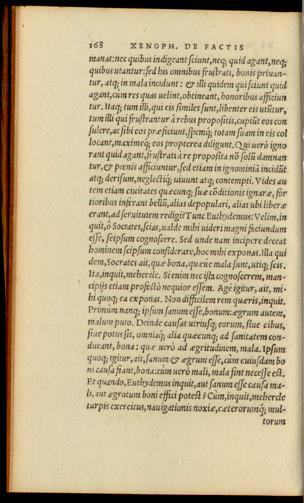 168 XENOPH. DE FACTIS
manas: nec quibus indigeant sciunt, neq; quid agant, neq;
quibus utantur: sed his omnibus frustrati, bonis priuan-
tur, atq; in mala incidunt: & illi quidem qui sciunt quid
agant, cum res quas uelint, obtineant, honoribus afficiun
tur. Itaq; tum illi, qui eis similes sunt, libenter eis utūtur,
tum illi qui frustrantur à rebus propositis, cupiūt eos con
sulere, ac sibi eos præficiunt, spemq́; totam suam in eis col
locant, maximeq́; eos propterea diligunt. Qui uerò igno
rant quid agant, frustrati à re proposita nō solū damnan
tur, & pœnis afficiuntur, sed etiam in ignominiā incidūt
atq; derisum, neglectiq́; uiuunt atq; contempti. Vides au
tem etiam ciuitates quæcunq; suæ cōditionis ignaræ, for
tioribus inferant bellū, alias depopulari, alias ubi liberæ
erant, ad seruitutem redigi? Tunc Euthydemus: Velim, in
quit, ô Socrates, scias, ualde mihi uideri magni faciundum
esse, seipsum cognoscere. Sed unde nam incipere deceat
hominem seipsum considerare, hoc mihi exponas. illa qui
dem, Socrates ait, quæ bona, quæue mala sunt, utiq; scis.
Ita, inquit, mehercle. Si enim nec ista cognoscerem, man-
cipijs etiam profectò nequior essem. Age igitur, ait, mi-
hi quoq; ea exponas. Non difficilem rem quæris, inquit.
Primum nanq; ipsum sanum esse, bonum: ægrum autem,
malum puto. Deinde causas utriusq́; eorum, siue cibus,
siue potus sit, omniaq́; alia quæcunq; ad sanitatem con-
ducant, bona: quæ uerò ad ægritudinem, mala. Ipsum
quoq; igitur, ait, sanum & ægrum esse, cùm cuiusdam bo
ni causa fiant, bona: cùm uerò mali, mala sint necesse est.
Et quando, Euthydemus inquit, aut sanum esse causa ma-
li, aut ægrotum boni effici potest? Cùm, inquit, mehercle
turpis exercitus, nauigationis noxiæ, cæterorumq́; mul-
torum